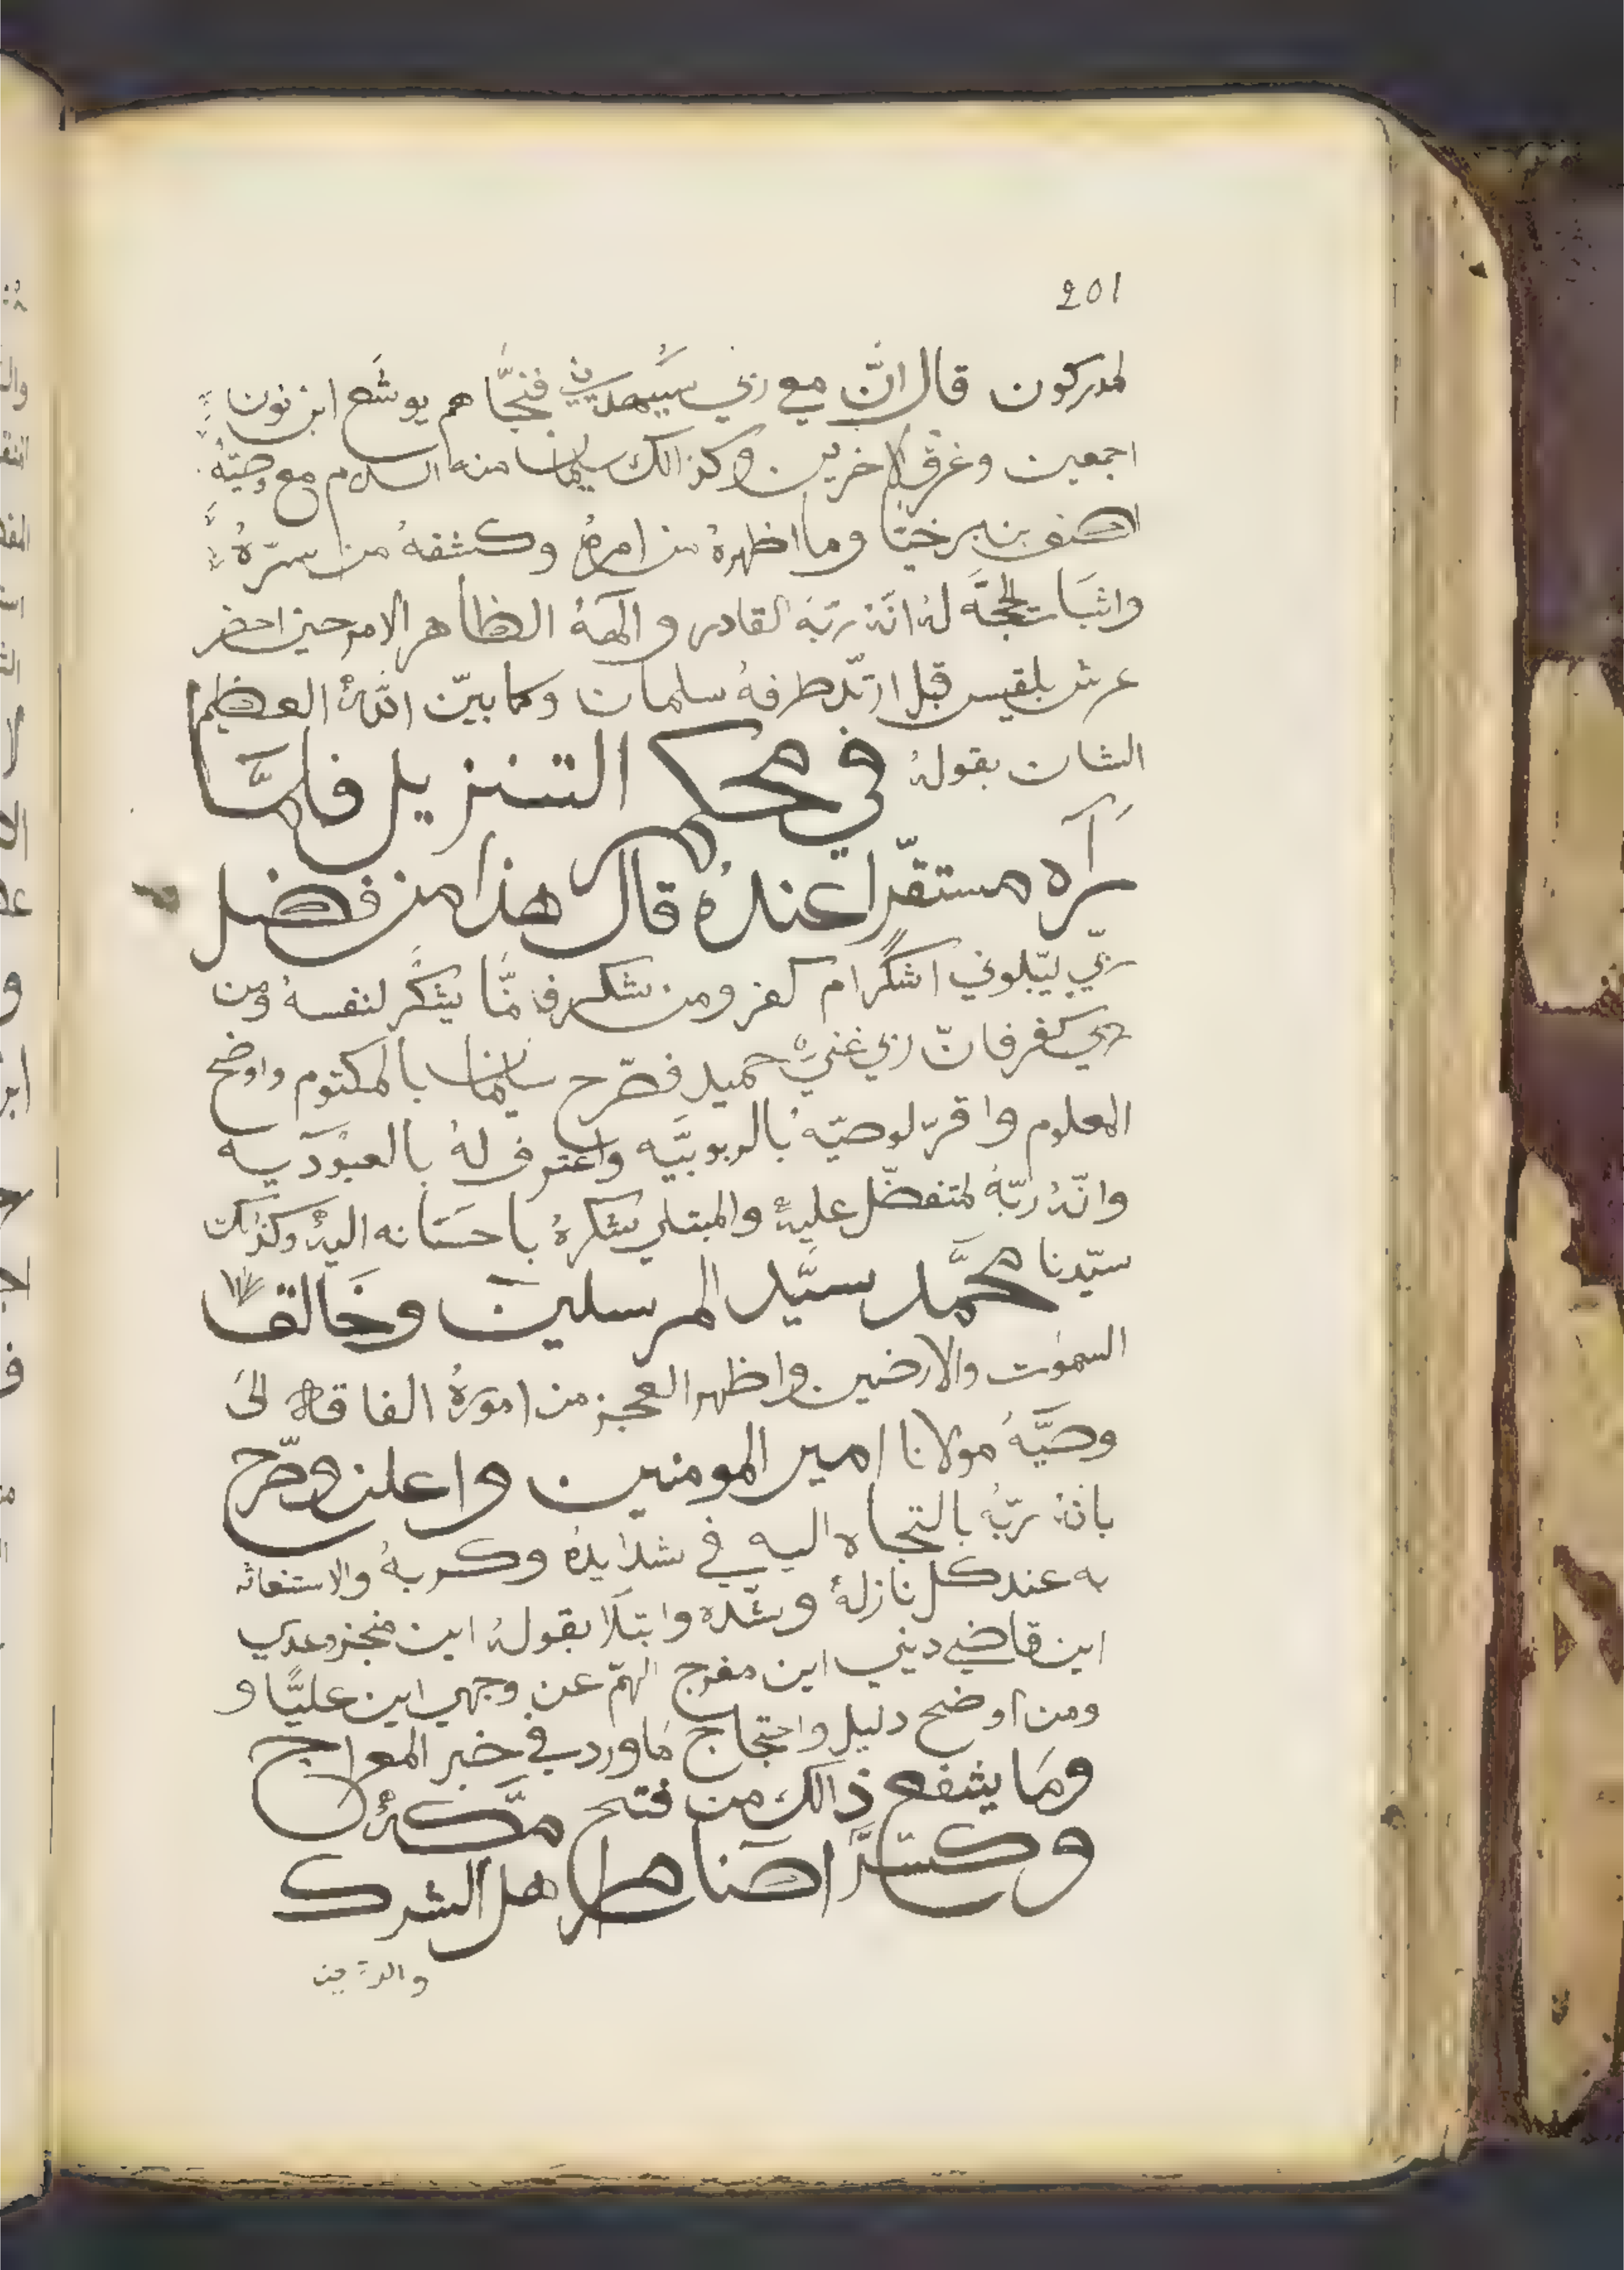 201
لمدركون قال انّ مع ربي سيهدين فنجّاهم يوشع ابن نون
اجمعين وغرق الاخرين وكذالك سليمان منه السلام مع وصيّهُ
اصف بن برخيّا وما اظهرهُ من امرهُ وكشفهُ من سرّهُ
واثبات الحجّة لهُ انّهُ ربّهُ القادر والههُ الظاهر الامر حين احضر
عرش بلقيس قبل ارتدّ طرفهُ سلمان وكما بيّن اللّهُ العظيم
الشان بقولهُ في محكم التنزيل فلمّا
رآه مستقرّا عندهُ قال هذا من فضل
ربّي ليبلوني اشكرام كفر ومن شكر فانّما يشكر لنفسهُ ومن
كفر فانّ ربي غنيّ حميد فصّرح سليمان بالمكتوم واوضح
المعلوم واقرّ لوصيّهُ بالربوبيّه واعترف لهُ بالعبوديه
وانّهُ ربّهُ لمتفضّل عليهُ والمبتلي بشكرهُ باحسانه اليهُ وكذلك
سيّدنا محمّد سيّد المرسلين وخالق
السموت والارضين واظهر العجز من امورهُ الفاقه الى
وصيّهُ مولانا امير المومنين واعلن وصرّح
بانّهُ ربّهُ بالتجاه اليه في شدايدهُ وكربهُ والاستغاثه
به عند كل نازلهُ وشدّه وابتلا بقولهُ اين منجز وعدي
اين قاضي ديني اين مفرج الهمّ عن وجهي اين عليًّا و
ومن اوضح دليل واحتجاج ماورد في خبر المعراج
وما يشفع ذالك من فتح مكّهُ
وكسّر اصنام اهل الشرك